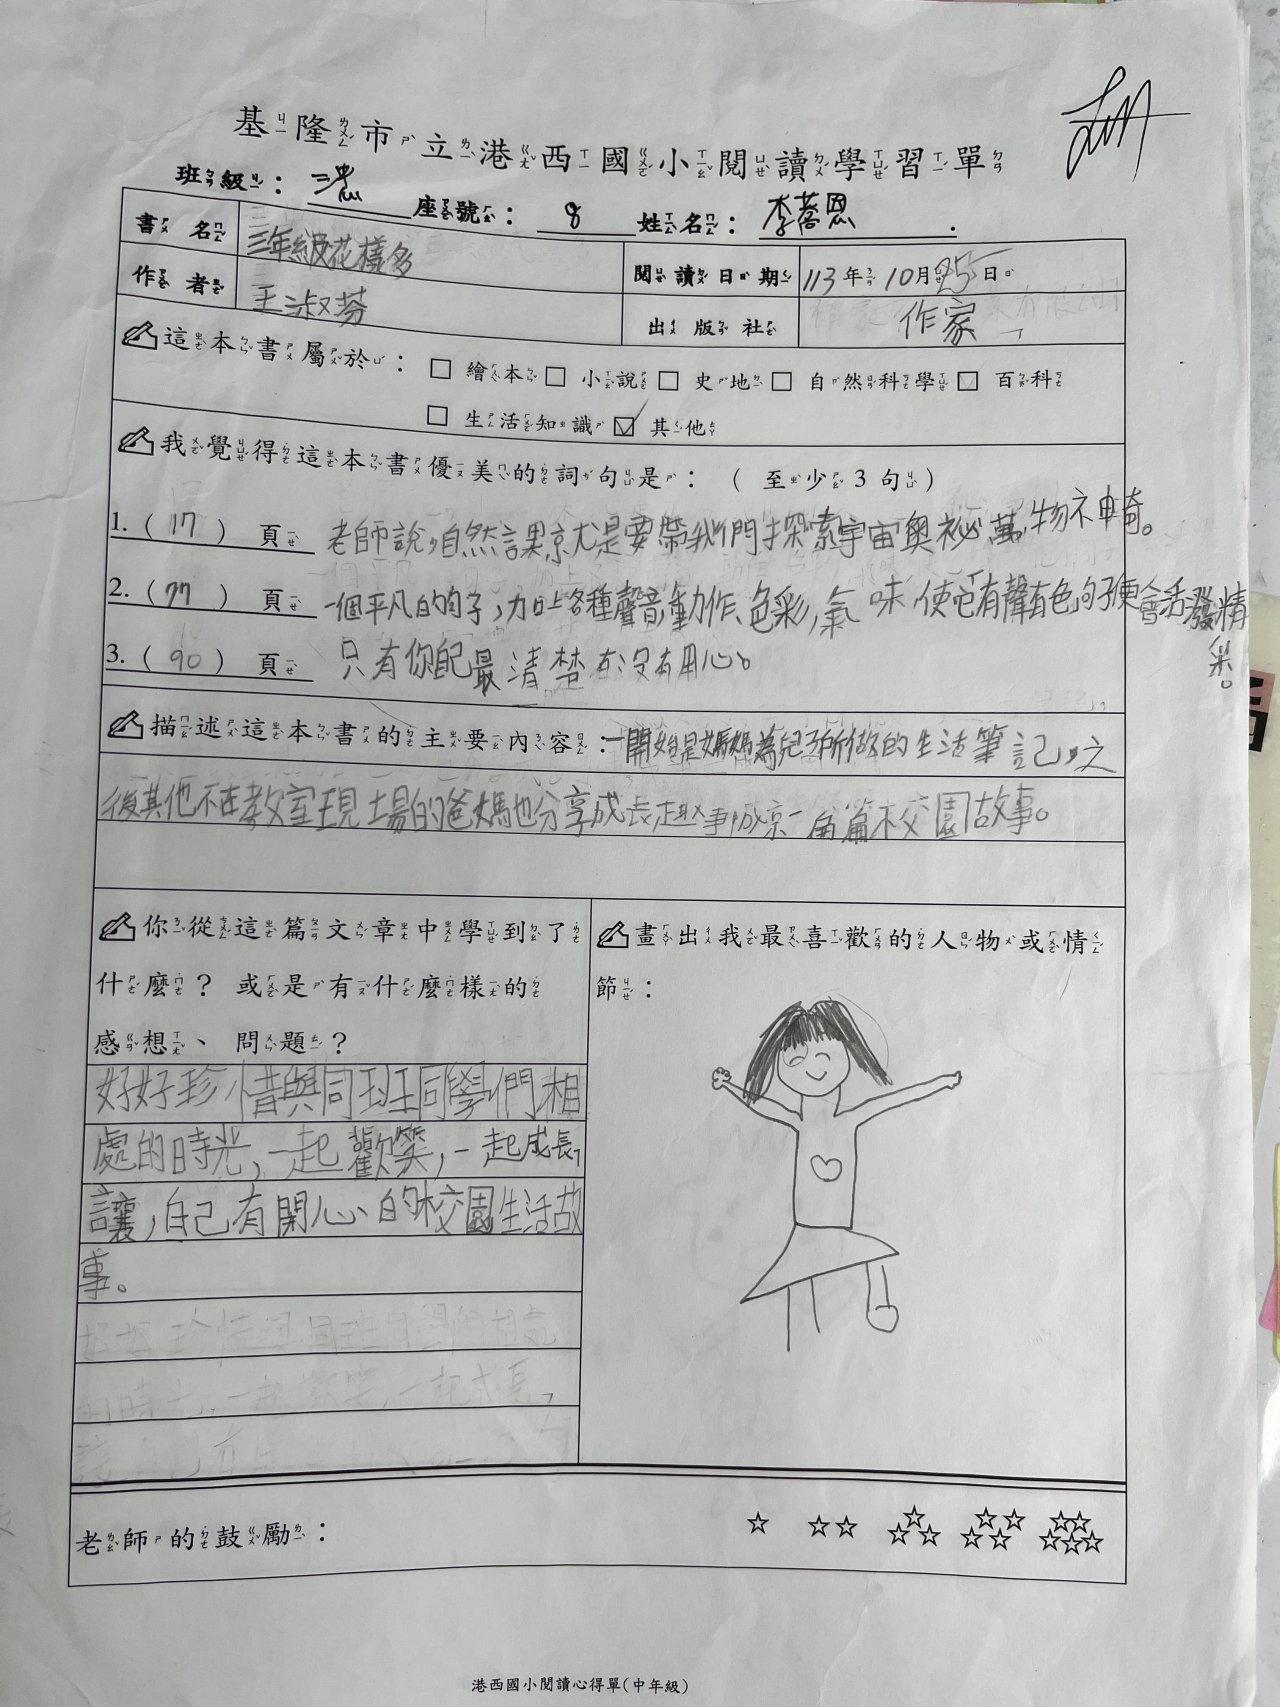 基隆市立港西國小閱讀學習單
班級： 三忠 座號： 8 姓名： 李蕎恩 .
書名 三年級花樣多
作者 王淑芬
閱讀日期 113年10月25日
出版社 作家
這本書屬於： □繪本 □小說 □史地 □自然科學 □百科
□生活知識 ☑其他
我覺得這本書優美的詞句是：（至少3句）
1.（17）頁 老師說，自然課就是要帶我們探索宇宙奧祕萬物神奇。
2.（77）頁 一個平凡的句子，加上各種聲音、動作、色彩，氣味，使它有聲有色，句子便會活潑精
采。
3.（90）頁 只有你自己最清楚有沒有用心。
描述這本書的主要內容：一開始是媽媽為兒子所做的生活筆記，之
後其他不在教室現場的爸媽也分享成長趣事，成就一篇篇校園故事。
你從這篇文章中學到了
什麼？或是有什麼樣的
感想、問題？
好好珍惜與同班同學們相
處的時光，一起歡笑，一起成長，
讓，自己有開心的校園生活故
事。
畫出我最喜歡的人物或情
節：
老師的鼓勵： ☆ ☆☆ ☆☆☆ ☆☆☆☆ ☆☆☆☆☆
港西國小閱讀心得單(中年級)